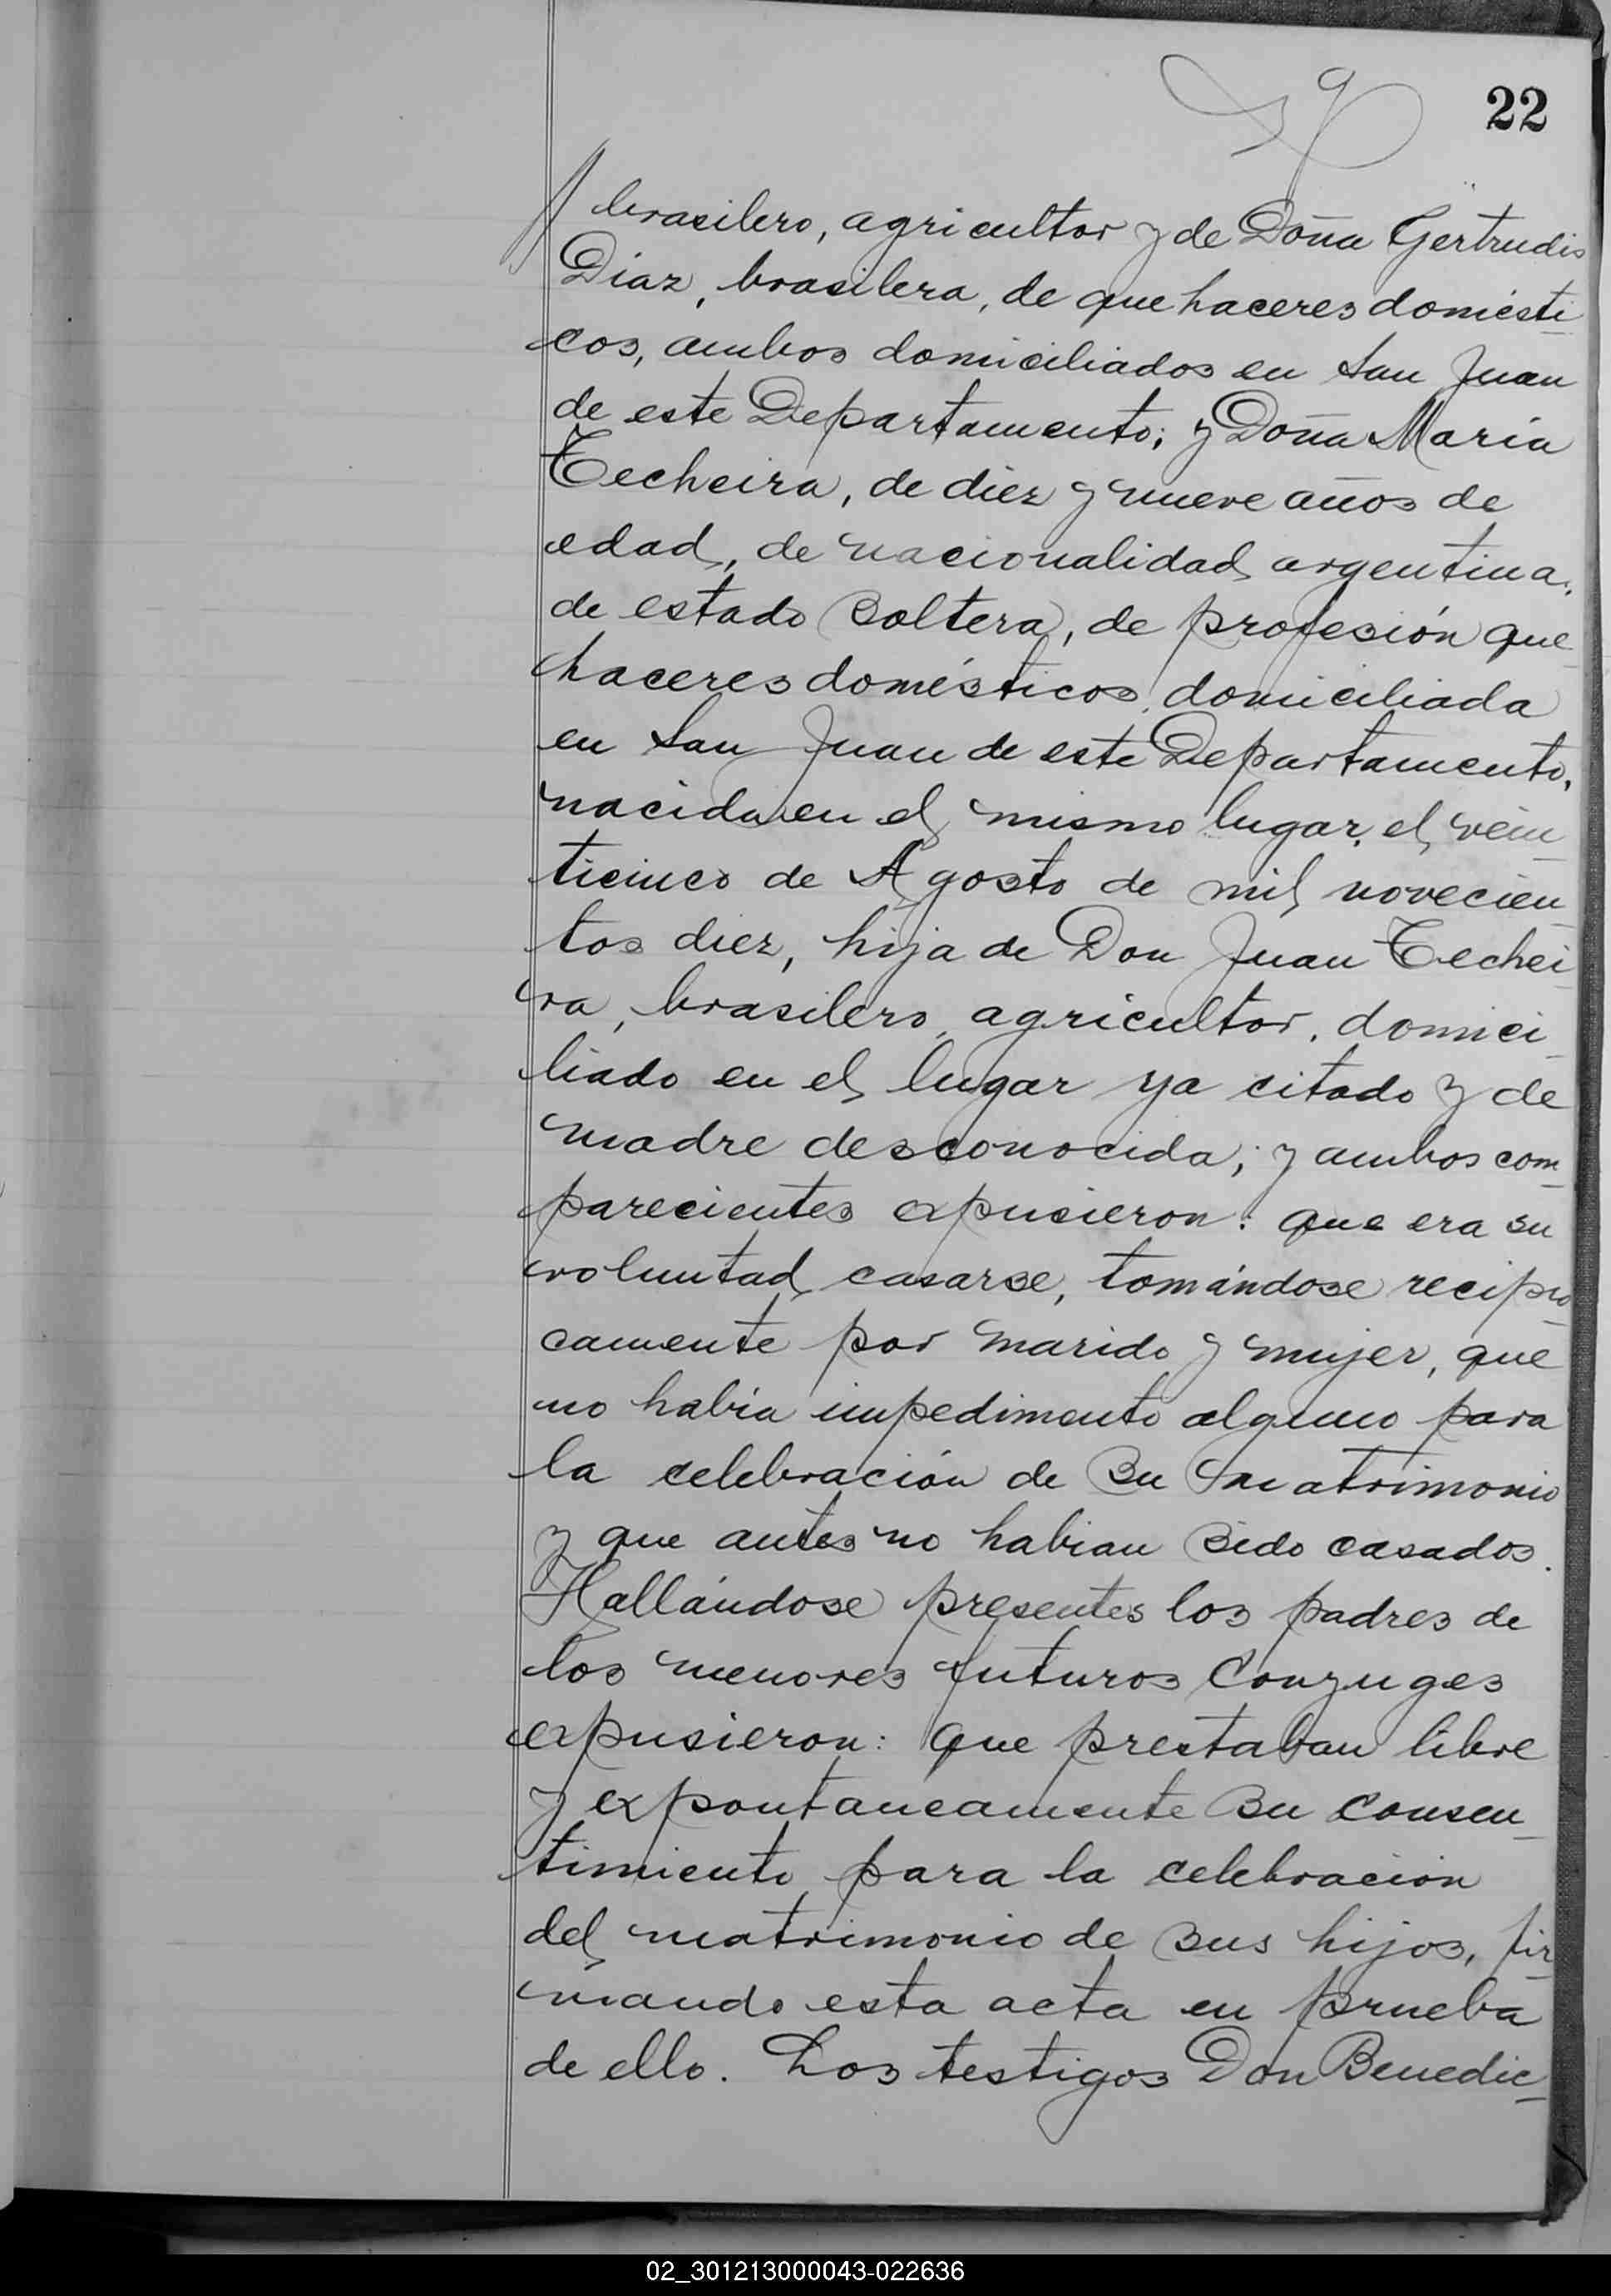 22
brasilero, agricultor y de Doña Gertrudis
Diaz, brasilera, de que haceres domésti
cos, ambos domiciliados en San Juan
de este Departamento; y Doña María
Techeira, de diez y nueve años de
edad, de nacionalidad argentina,
de estado soltera, de profesión que
haceres domésticos, domiciliada
en San Juan de este Departamento,
nacida en el mismo lugar, el vein
ticinco de Agosto de mil novecien
tos diez, hija de Don Juan Techei
ra, brasilero, agricultor, domici
liado en el lugar ya citado y de
madre desconocida; y ambos com
parecientes expusieron: que era su
voluntad casarse, tomándose recipro
camente por marido y mujer, que
no había impedimento alguno para
la celebración de su matrimonio
y que antes no habian sido casados.
Hallándose presentes los padres de
los menores futuros conyuges
expusieron: que prestaban libre
y expontaneamente su consen
timiento para la celebración
del matrimonio de sus hijos, fir
mando esta acta en prueba
de ello. Los testigos Don Benedic
02_301213000043-022636